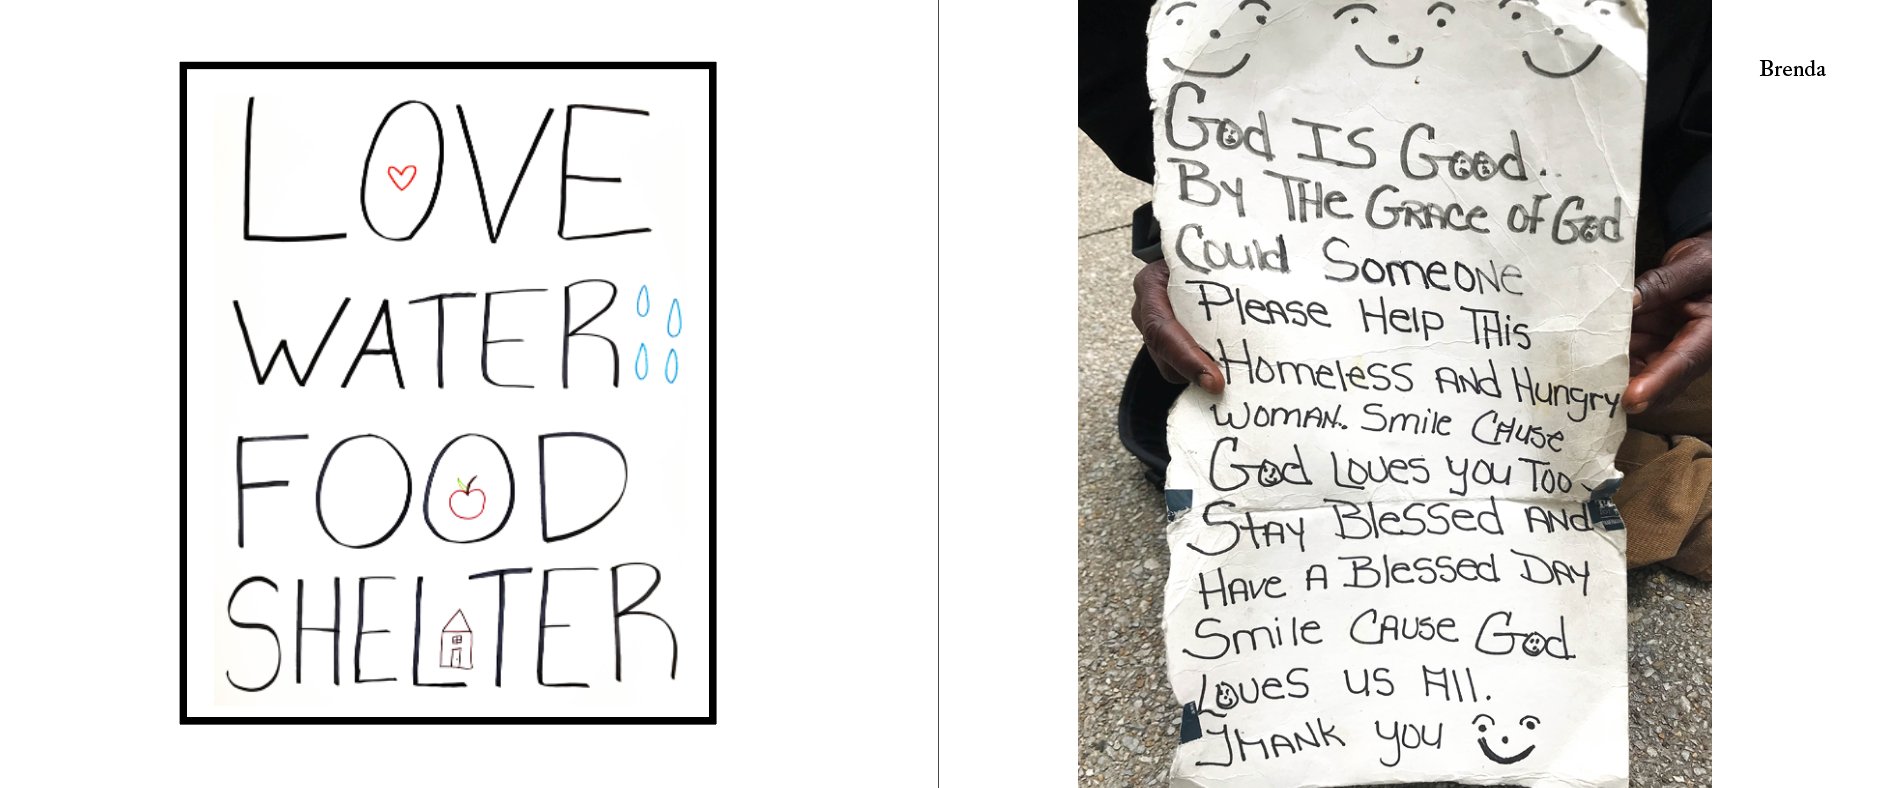 LOVE
WATER
FOOD
SHELTER
Brenda
God IS Good..
By THe GRACe of God
Could SomeoNe
PleAse Help THis
HomeleSS ANd Hungry
WOMAN. Smile CAuse
God Loves you Too
StAy BleSSed ANd
HAve A Blessed DAy
Smile CAuse God
Loves us All.
THANK you